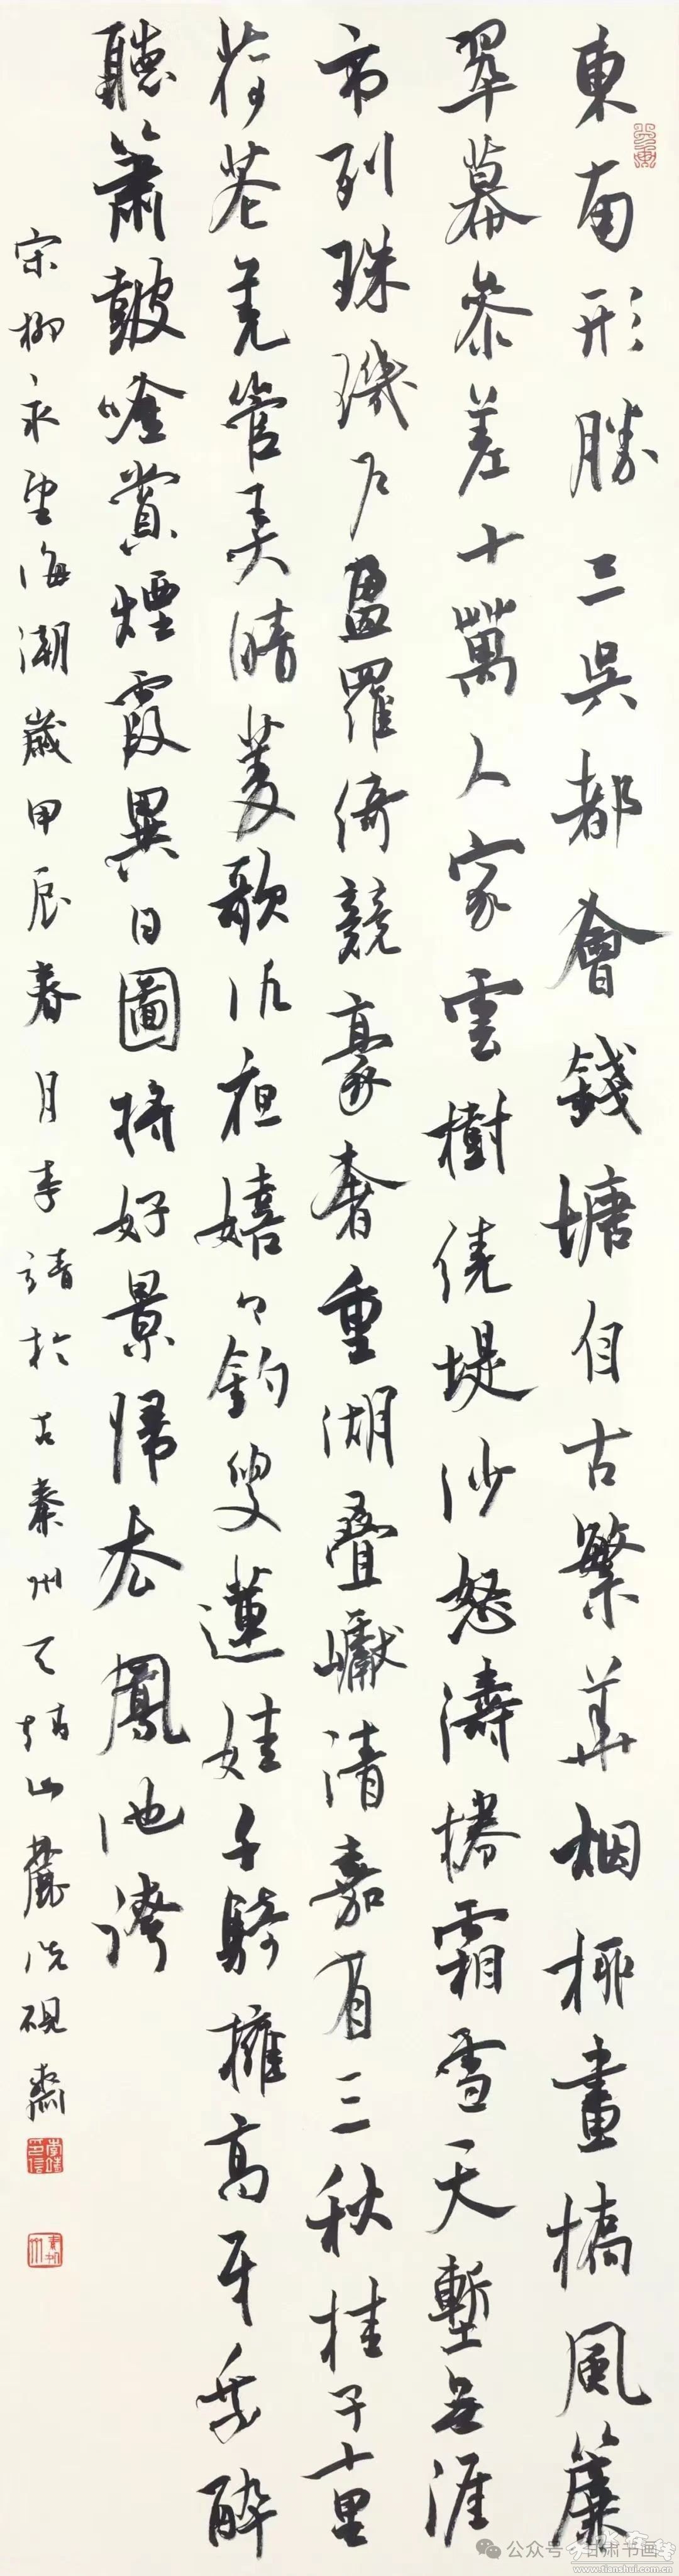 東南形勝三吳都會錢塘自古繁華烟柳畫橋風簾
翠幕參差十萬人家雲樹繞堤沙怒濤捲霜雪天塹無涯
市列珠璣户盈羅綺競豪奢重湖疊巘清嘉有三秋桂子十里
荷花羌管弄晴菱歌泛夜嬉々釣叟蓮娃千騎擁高牙乘醉
聽簫鼓吟賞煙霞異日圖將好景歸去鳳池誇
宋柳永望海潮歲甲辰春月李靖於古秦州天靖山麓洗硯齋
公众号 甘肃书画
www.tianshui.com.cn